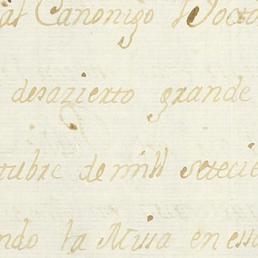 al Canonigo Docto
desazierto grande
tubre de mill setecie
ndo la Missa en essa